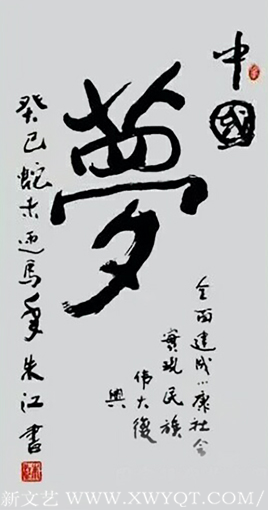 中國
夢
全面建成小康社会
實現民族
伟大復
興
癸巳蛇末迎馬年朱江書
新文艺／WWW.XWYQT.COM／